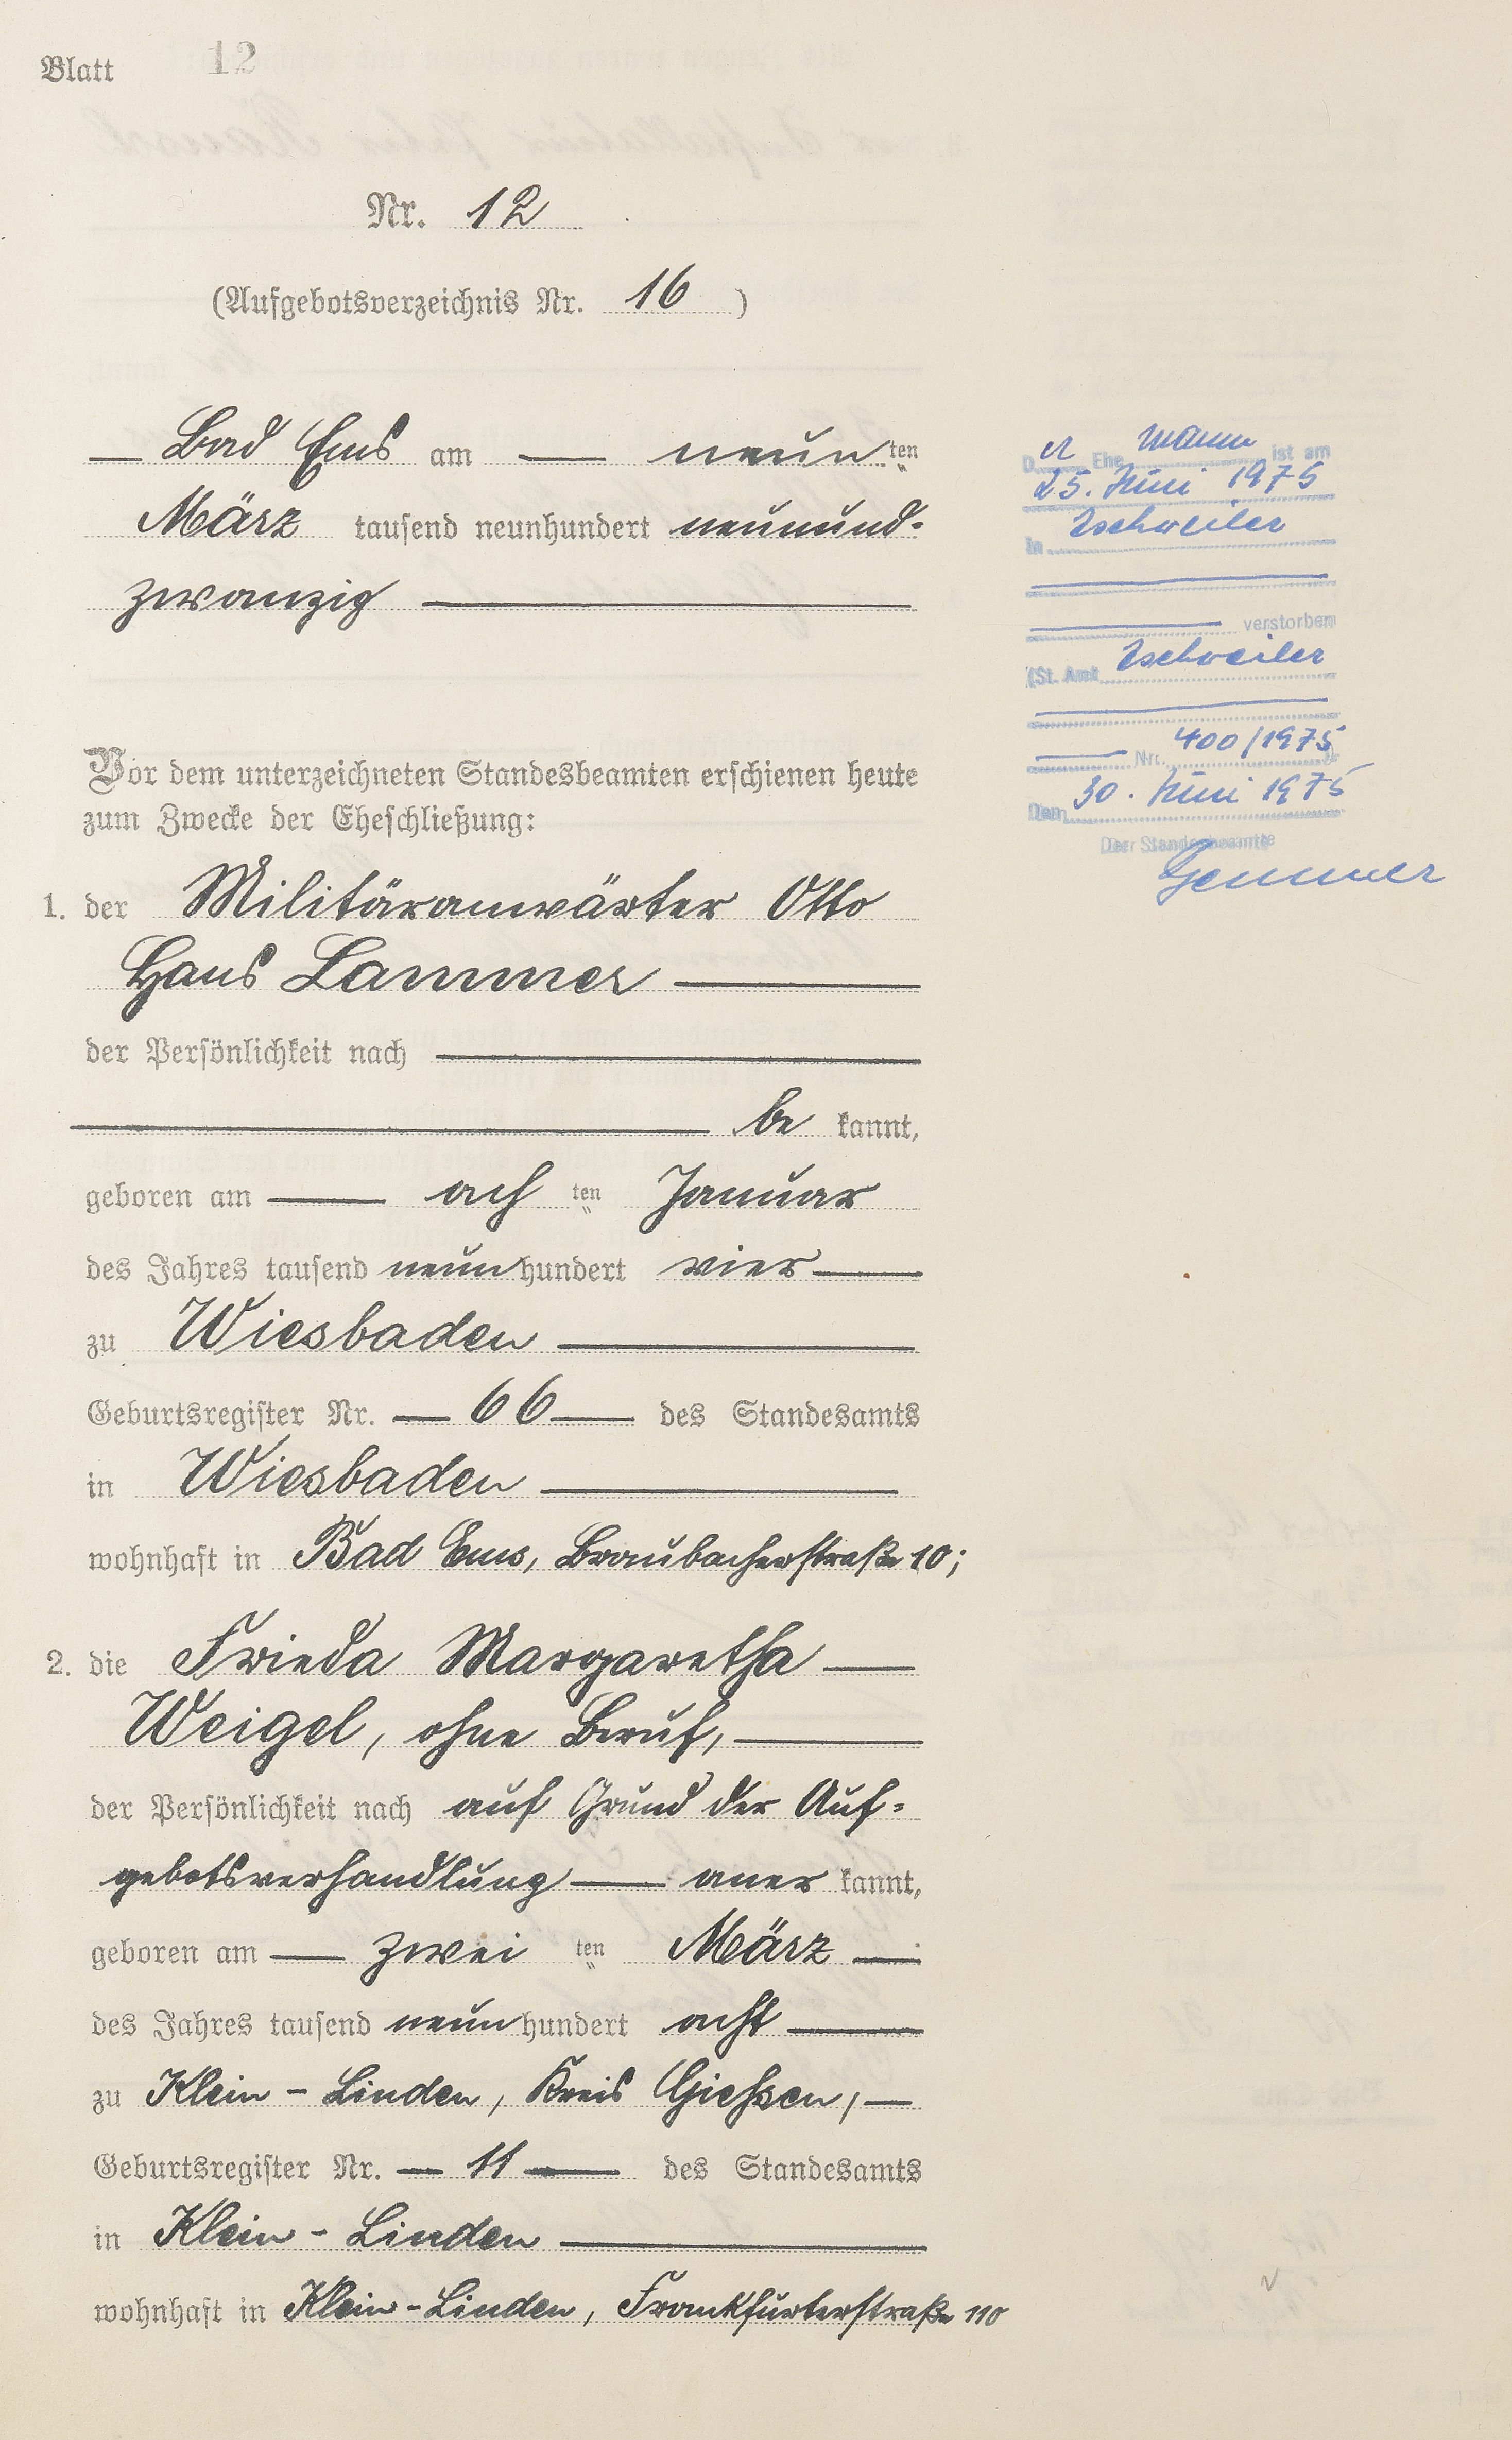 Blatt 12
Nr. 12
(Aufgebotsverzeichnis Nr. 16)
Bad Ems am neunten
März tausend neunhundert neunund-
zwanzig
Vor dem unterzeichneten Standesbeamten erschienen heute
zum Zwecke der Eheschließung:
1. der Militäranwärter Otto
Hans Lammer
der Persönlichkeit nach
be kannt,
geboren am ach ten Januar
des Jahres tausend neunhundert vier
zu Wiesbaden
Geburtsregister Nr. 66 des Standesamts
in Wiesbaden
wohnhaft in Bad Ems, Braubacherstraße 10;
2. die Frieda Margaretha
Weigel, ohne Beruf,
der Persönlichkeit nach auf Grund der Auf-
gebotsverhandlung aner kannt,
geboren am zwei ten März
des Jahres tausend neunhundert acht
zu Klein-Linden, Kreis Giessen,
Geburtsregister Nr. 11 des Standesamts
in Klein-Linden
wohnhaft in Klein-Linden, Frankfurterstraße 110
Der Ehemann ist am
25. Juni 1975
in Eschweiler
verstorben
(St. Amt Eschweiler
Nr. 400/1975)
Den 30. Juni 1975
Der Standesbeamte